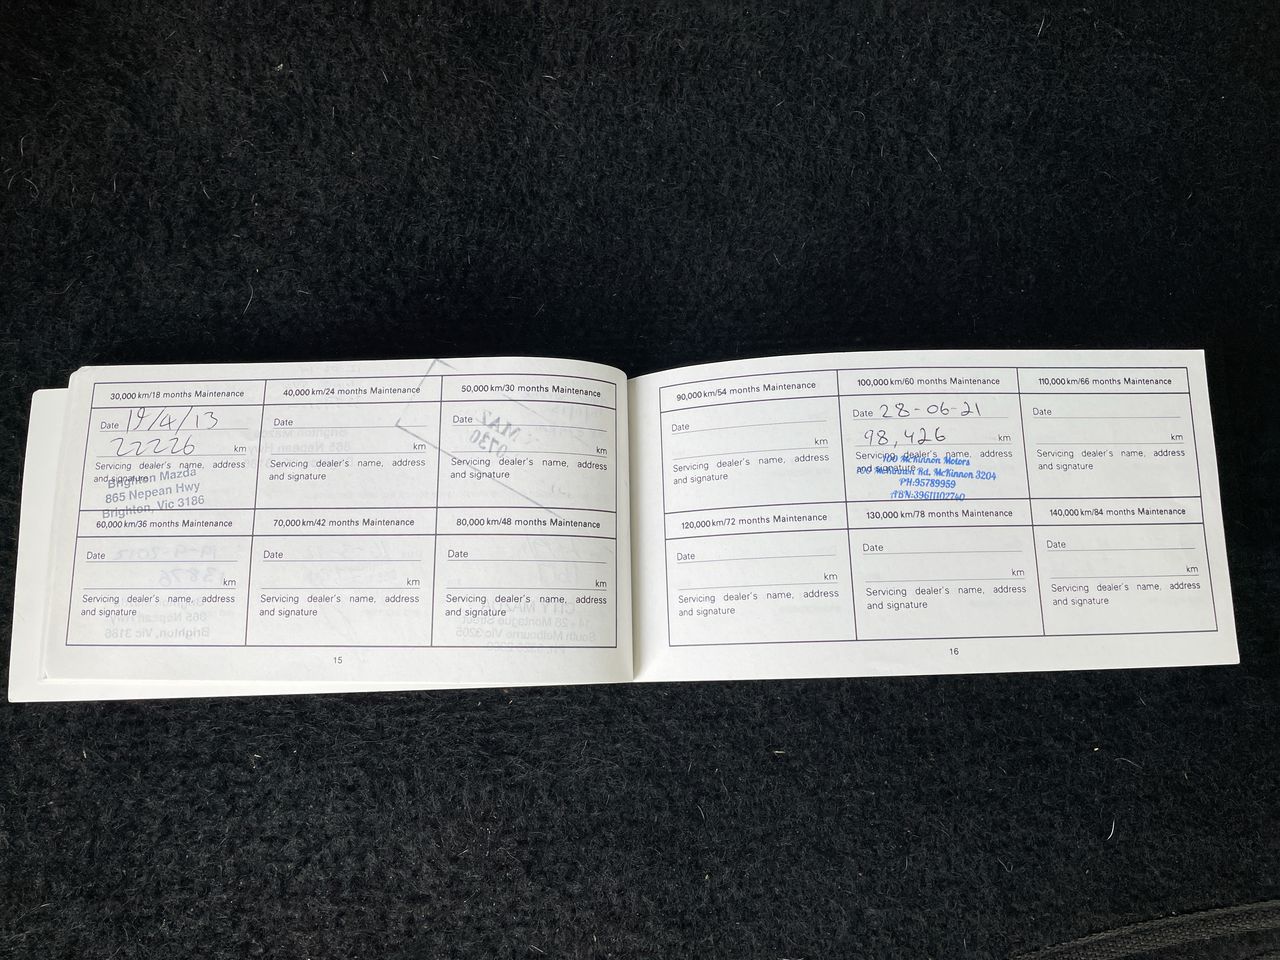 30,000 km/18 months Maintenance
Date 19/4/13
22226 km
Servicing dealer's name, address
and signature
Brighton Mazda
865 Nepean Hwy
Brighton, Vic 3186
40,000 km/24 months Maintenance
Date
km
Servicing dealer's name, address
and signature
50,000 km/30 months Maintenance
Date
km
Servicing dealer's name, address
and signature
60,000 km/36 months Maintenance
Date
km
Servicing dealer's name, address
and signature
70,000 km/42 months Maintenance
Date
km
Servicing dealer's name, address
and signature
80,000 km/48 months Maintenance
Date
km
Servicing dealer's name, address
and signature
15
90,000 km/54 months Maintenance
Date
km
Servicing dealer's name, address
and signature
100,000 km/60 months Maintenance
Date 28-06-21
98,426 km
Servicing dealer's name, address
and signature
100 McKinnon Motors
100 McKinnon Rd. McKinnon 3204
PH:95789959
ABN:39611102740
110,000 km/66 months Maintenance
Date
km
Servicing dealer's name, address
and signature
120,000 km/72 months Maintenance
Date
km
Servicing dealer's name, address
and signature
130,000 km/78 months Maintenance
Date
km
Servicing dealer's name, address
and signature
140,000 km/84 months Maintenance
Date
km
Servicing dealer's name, address
and signature
16